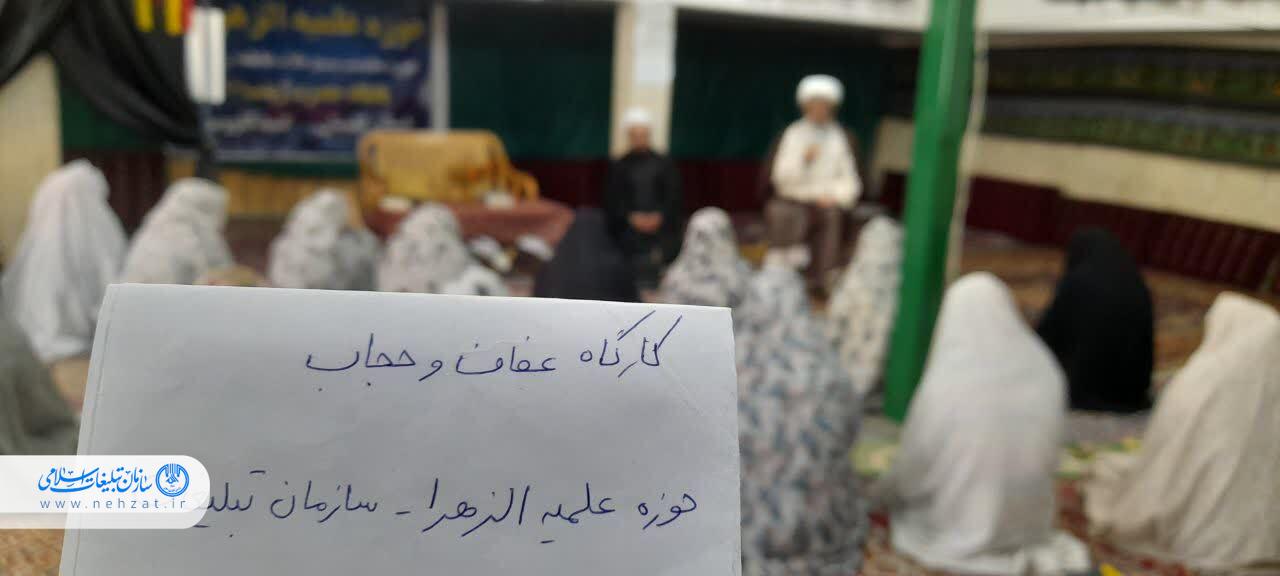 حوزه علمیه الزهر
کارگاه عفاف و حجاب
حوزه علمیه الزهرا - سازمان تبلیغ
سازمان تبلیغات اسلامی
www.nehzat.ir